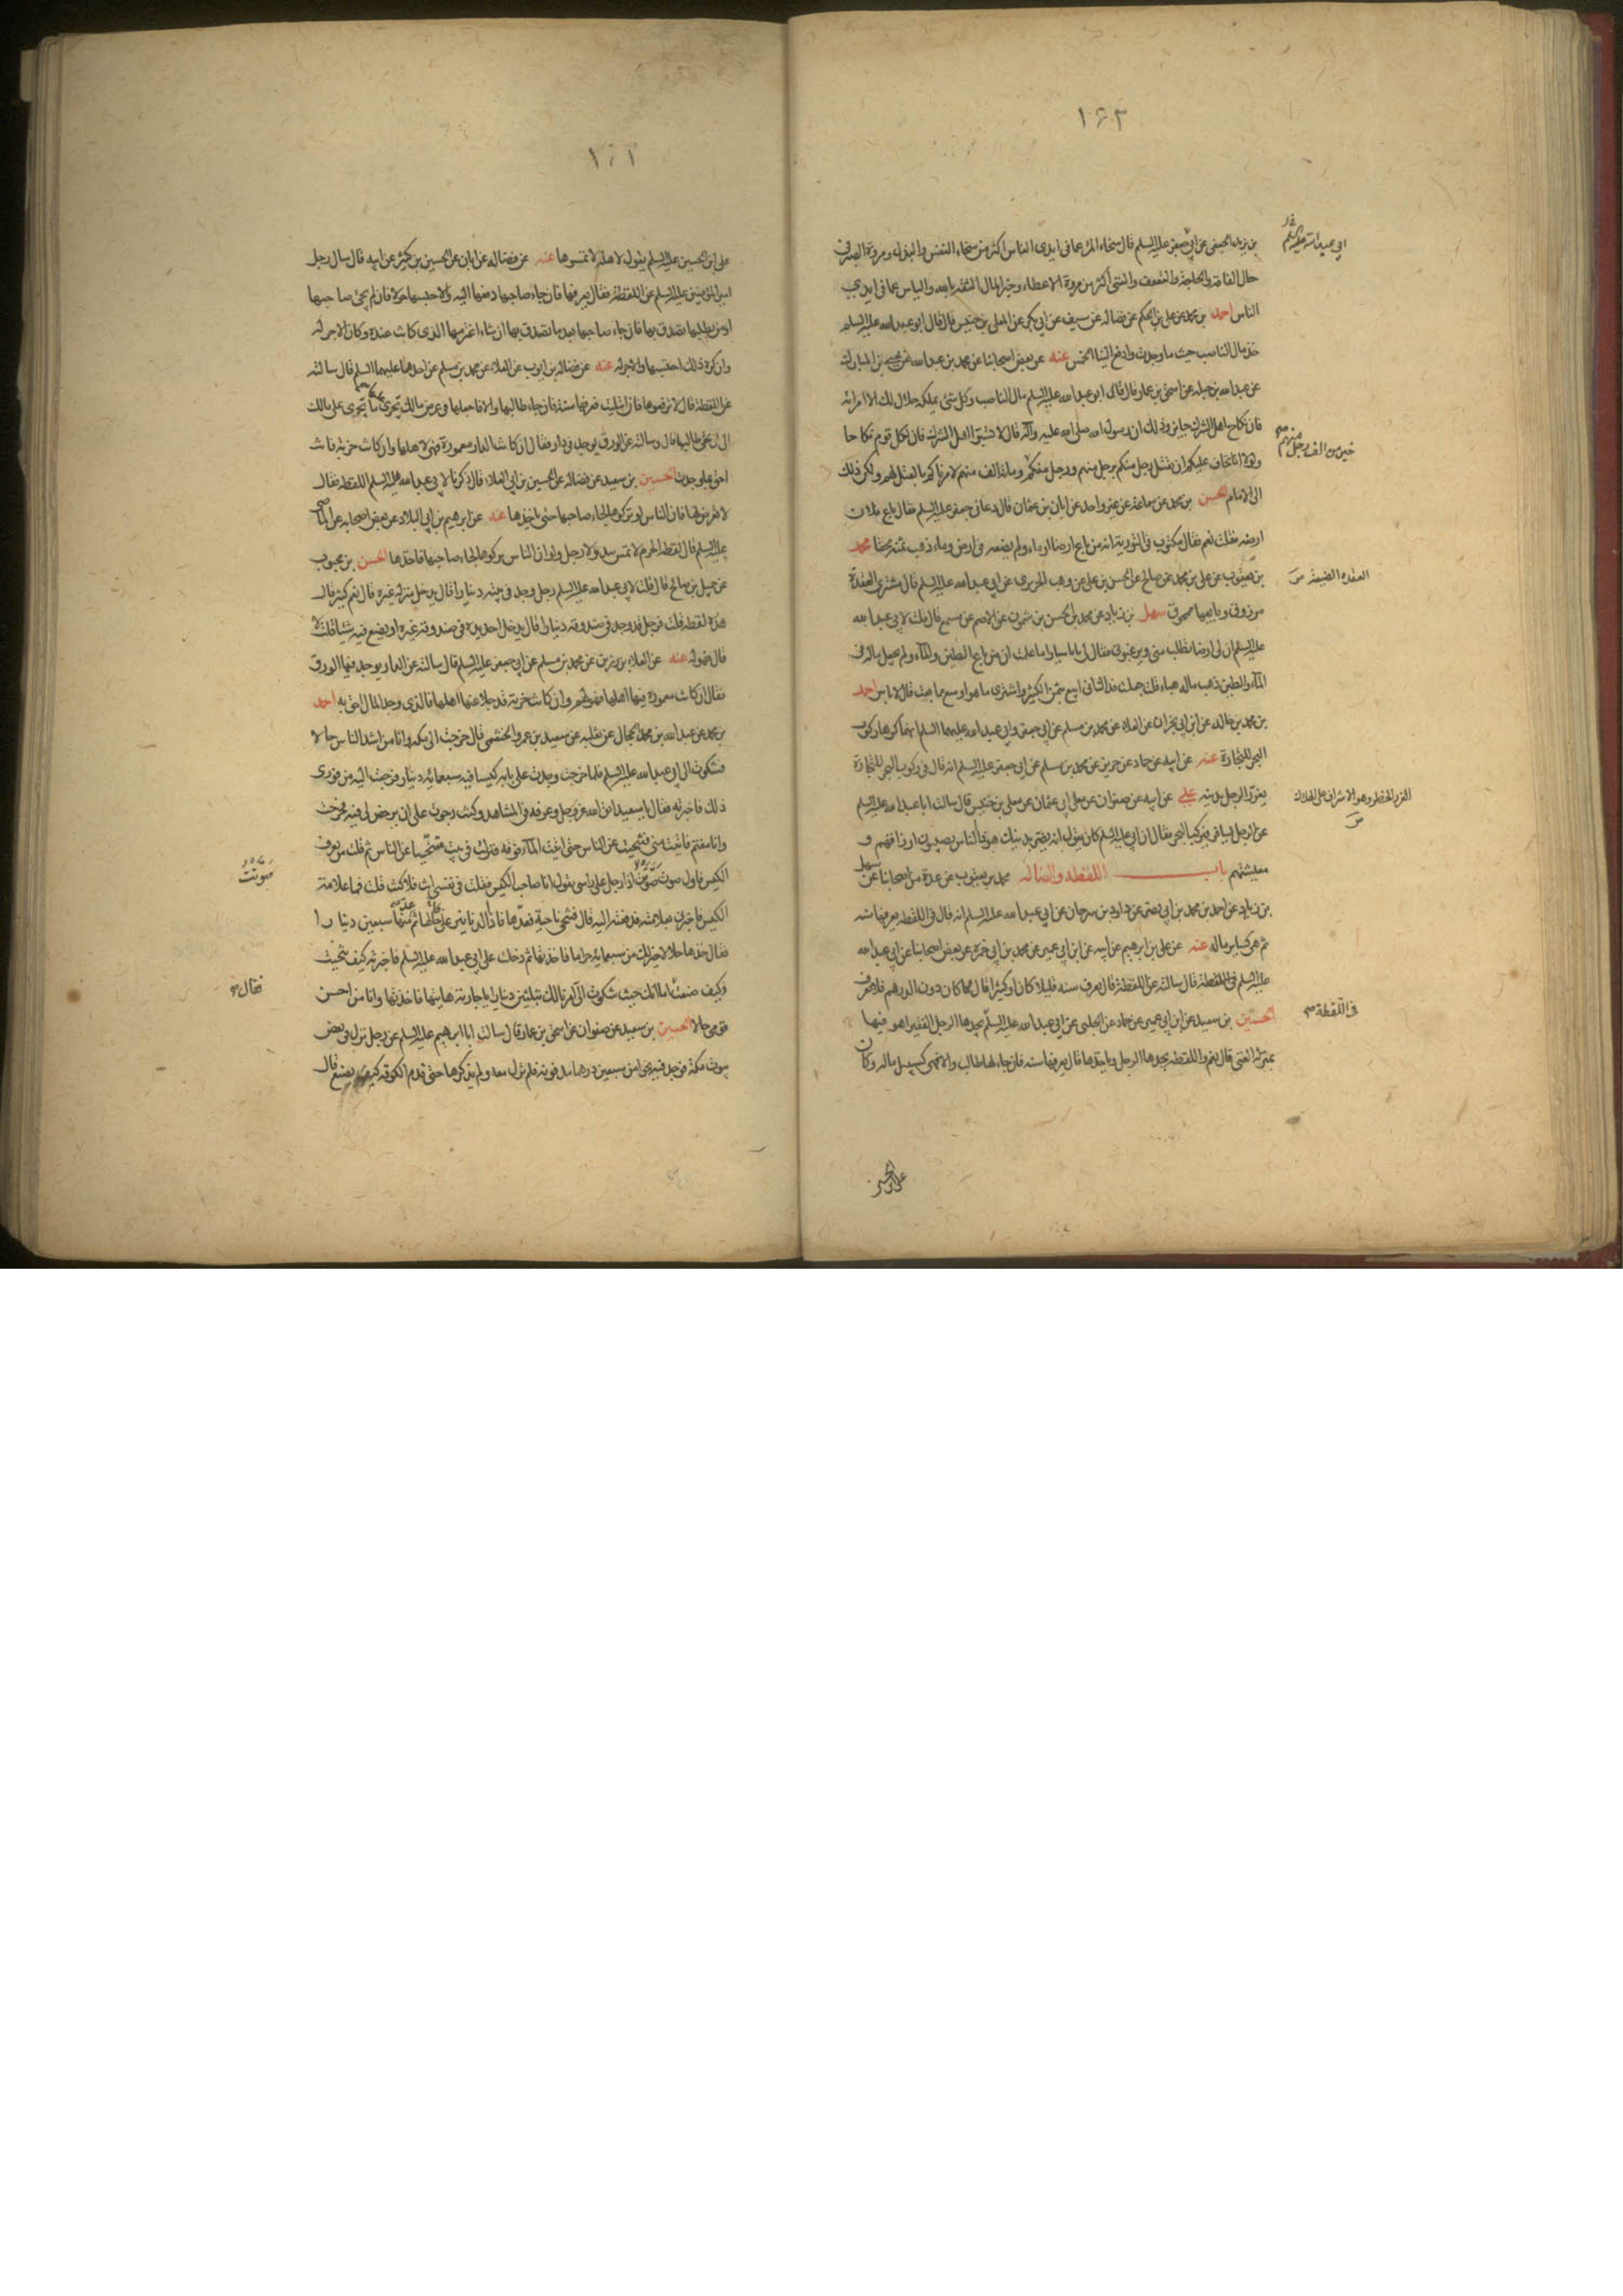 ١٦٢
بن يزيد الجعفي عن ابي جعفر عليه السلم قال سخاء المرء عما في ايدي الناس اكثر من سخاء النفس والبذل ومروة الصبر في
حال الفاقة والحاجة والتعفف والغنى اكثر من مروة الاعطاء وخير المال الثقة بالله والياس مما في ايدي
الناس احمد بن محمد عن علي بن الحكم عن فضالة عن سيف عن ابي بكر عن المعلى بن خنيس قال قال ابو عبد الله عليه السلم
خذ مال الناصب حيث ما وجدت وادفع الينا الخمس عنه عن بعض اصحابنا عن محمد بن عبد الله عن يحيى بن المبارك
عن عبد الله بن جبلة عن اسحق بن عمار قال قال ابو عبد الله عليه السلم مال الناصب وكل شئ يملكه حلال لك الا امراته
فان نكاح اهل الشرك جايز وذلك ان رسول الله صلى الله عليه وآله قال لا تسبوا اهل الشرك فان لكل قوم نكاحا
ولولا انا نخاف عليكم ان يقتل رجل منكم برجل منهم ورجل منكم وماية الف منهم لامرناكم بالقتل لهم ولكن ذلك
الى الامام الحسن بن محمد عن سماعة عن غير واحد عن ابان بن عثمان قال دعاني جعفر عليه السلم فقال باع فلان
ارضه فقلت نعم فقال مكتوب في التورية انه من باع ارضا او ماء ولم يضعه في ارض وماء ذهب ثمنه محقا محمد
بن يعقوب عن علي بن محمد عن صالح عن الحسن بن علي عن وهب الحريري عن ابي عبد الله عليه السلم قال مشتري العقدة
مرزوق وبايعها ممحوق سهل بن زياد عن محمد بن الحسن بن شمون عن الاصم عن مسمع قال قلت لابي عبد الله
عليه السلم ان لي ارضا تطلب مني ويرغبوني فقال لي يا ابا سيار اما علمت ان من باع الطين والماء ولم يجعل ماله في
الماء والطين ذهب ماله هباء قلت جعلت فداك اني ابيع بثمن الكثير واشتري ما هو اوسع مما بعت فقال لا باس احمد
بن محمد بن خالد عن ابن ابي نجران عن العلاء عن محمد بن مسلم عن ابي جعفر وابي عبد الله عليهما السلم انهما كرها ركوب
البحر للتجارة عنه عن ابيه عن حماد عن حريز عن محمد بن مسلم عن ابي جعفر عليه السلم انه قال في ركوب البحر للتجارة
يغرر الرجل بدينه علي عن ابيه عن صفوان عن معلى ابي عثمان عن معلى بن خنيس قال سالت ابا عبد الله عليه السلم
عن الرجل يسافر فيركب البحر فقال ان ابي عليه السلم كان يقول انه يضر بدينك هو ذا الناس يصيبون ارزاقهم و
معيشتهم باب اللقطة والضالة محمد بن يعقوب عن عدة من اصحابنا عن سهل
بن زياد عن احمد بن محمد بن ابي نصر عن داود بن سرحان عن ابي عبد الله عليه السلم انه قال في اللقطة يعرفها سنة
ثم هي كساير ماله عنه عن علي بن ابرهيم عن ابيه عن ابن ابي عمير عن محمد بن ابي حمزة عن بعض اصحابنا عن ابي عبد الله
عليه السلم في اللقطة قال سالته عن اللقطة قال تعرف سنة قليلا كان او كثيرا قال فما كان دون الدرهم فلا يعرف
الحسين بن سعيد عن ابن ابي عمير عن حماد عن الحلبي عن ابي عبد الله عليه السلم يجدها الرجل الفقير اهو فيها
بمنزلة الغني قال نعم واللقطة يجدها الرجل وياخذها قال يعرفها سنة فان جاء لها طالب والا فهي كسبيل ماله وكان
ابي عبد الله عليه السلم
خير من الف رجل منهم
العقدة الضيعة
الغرر الخطر وهو الاشراف على الهلاك
في اللقطة
علي بن الحسين
١٦١
علي بن الحسين عليه السلم يقول لاهله لا تمسوها عنه عن فضالة عن ابان عن الحسين بن كثير عن ابيه قال سال رجل
امير المؤمنين عليه السلم عن اللقطة فقال يعرفها فان جاء صاحبها دفعها اليه والا حبسها حولا فان لم يجئ صاحبها
او من يطلبها تصدق بها فان جاء صاحبها بعد ما تصدق بها ان شاء اغترمها الذي كانت عنده وكان الاجر له
وان كره ذلك احتسبها والاجر له عنه عن فضالة بن ايوب عن العلاء عن محمد بن مسلم عن احدهما عليهما السلم قال سالته
عن اللقطة قال لا ترفعوها فان ابتليت فعرفها سنة فان جاء طالبها والا فاجعلها في عرض مالك تجري عليها ما تجري على مالك
الى ان يجئ طالبها قال وسالته عن الورق يوجد في دار فقال ان كانت الدار معمورة فهي لاهلها وان كانت خربة فانت
احق بما وجدت الحسين بن سعيد عن فضالة عن الحسين بن ابي العلاء قال ذكرنا لابي عبد الله عليه السلم اللقطة فقال
لا تعرض لها فان الناس لو تركوها لجاء صاحبها حتى ياخذها عنه عن ابرهيم بن ابي البلاد عن بعض اصحابه عن الماضي
عليه السلم قال لقطة الحرم لا تمس بيد ولا رجل ولو ان الناس تركوها لجاء صاحبها فاخذها الحسن بن محبوب
عن جميل بن صالح قال قلت لابي عبد الله عليه السلم رجل وجد في بيته دينارا قال يدخل منزله غيره قال نعم كثير قال
هذه لقطة قلت فرجل قد وجد في صندوقه دينارا قال يدخل احد يده في صندوقه غيره او يضع فيه شيئا قلت لا
قال فهو له عنه عن العلاء بن رزين عن محمد بن مسلم عن ابي جعفر عليه السلم قال سالته عن الدار يوجد فيها الورق
فقال ان كانت معمورة فيها اهلها فهو لهم وان كانت خربة قد جلا عنها اهلها فالذي وجد المال احق به احمد
بن محمد عن عبد الله بن محمد الحجال عن ثعلبة عن سعيد بن عمرو الخثعمي قال خرجت الى مكة وانا من اشد الناس حالا
فشكوت الى ابي عبد الله عليه السلم فلما خرجت وجدت على بابه كيسا فيه سبعماية دينار فرجعت اليه من فوري
ذلك فاخبرته فقال يا سعيد اتق الله عز وجل وعرفه في المشاهد وكنت رجوت على ان يرخص لي فيه فخرجت
وانا مغتم فاتيت منى فتنحيت عن الناس حتى اتيت الماء فوقفه فنزلت في بيت متنحيا عن الناس ثم قلت من يعرف
الكيس فاول صوت صوته اذا رجل على راسي يقول انا صاحب الكيس فقلت في نفسي انت فلا كنت قلت فما علامة
الكيس فاخبرني بعلامته فدفعته اليه قال فتنحى ناحية فعدها فاذا الدنانير على حالها ثم عد منها سبعين دينارا
فقال خذها حلالا خير لك من سبعماية حراما فاخذتها ثم دخلت على ابي عبد الله عليه السلم فاخبرته كيف تنحيت
وكيف صنعت اما انك حيث شكوت الي امرنا لك بثلثين دينارا يا جارية هاتيها فاخذتها وانا من احسن
قومي حالا الحسين بن سعيد عن صفوان عن اسحق بن عمار قال سالت ابا ابرهيم عليه السلم عن رجل نزل في بعض
بيوت مكة فوجد فيه نحوا من سبعين درهما مدفونة فلم تزل معه ولم يذكرها حتى قدم الكوفة كيف يصنع قال
صوتت
فقال